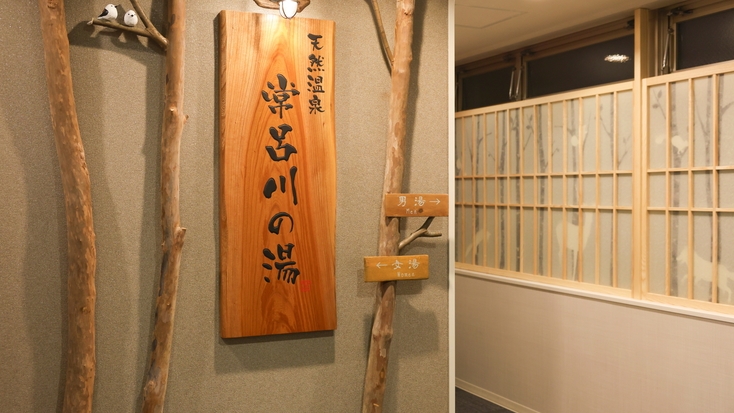 天然温泉
常呂川の湯
男湯→
←女湯